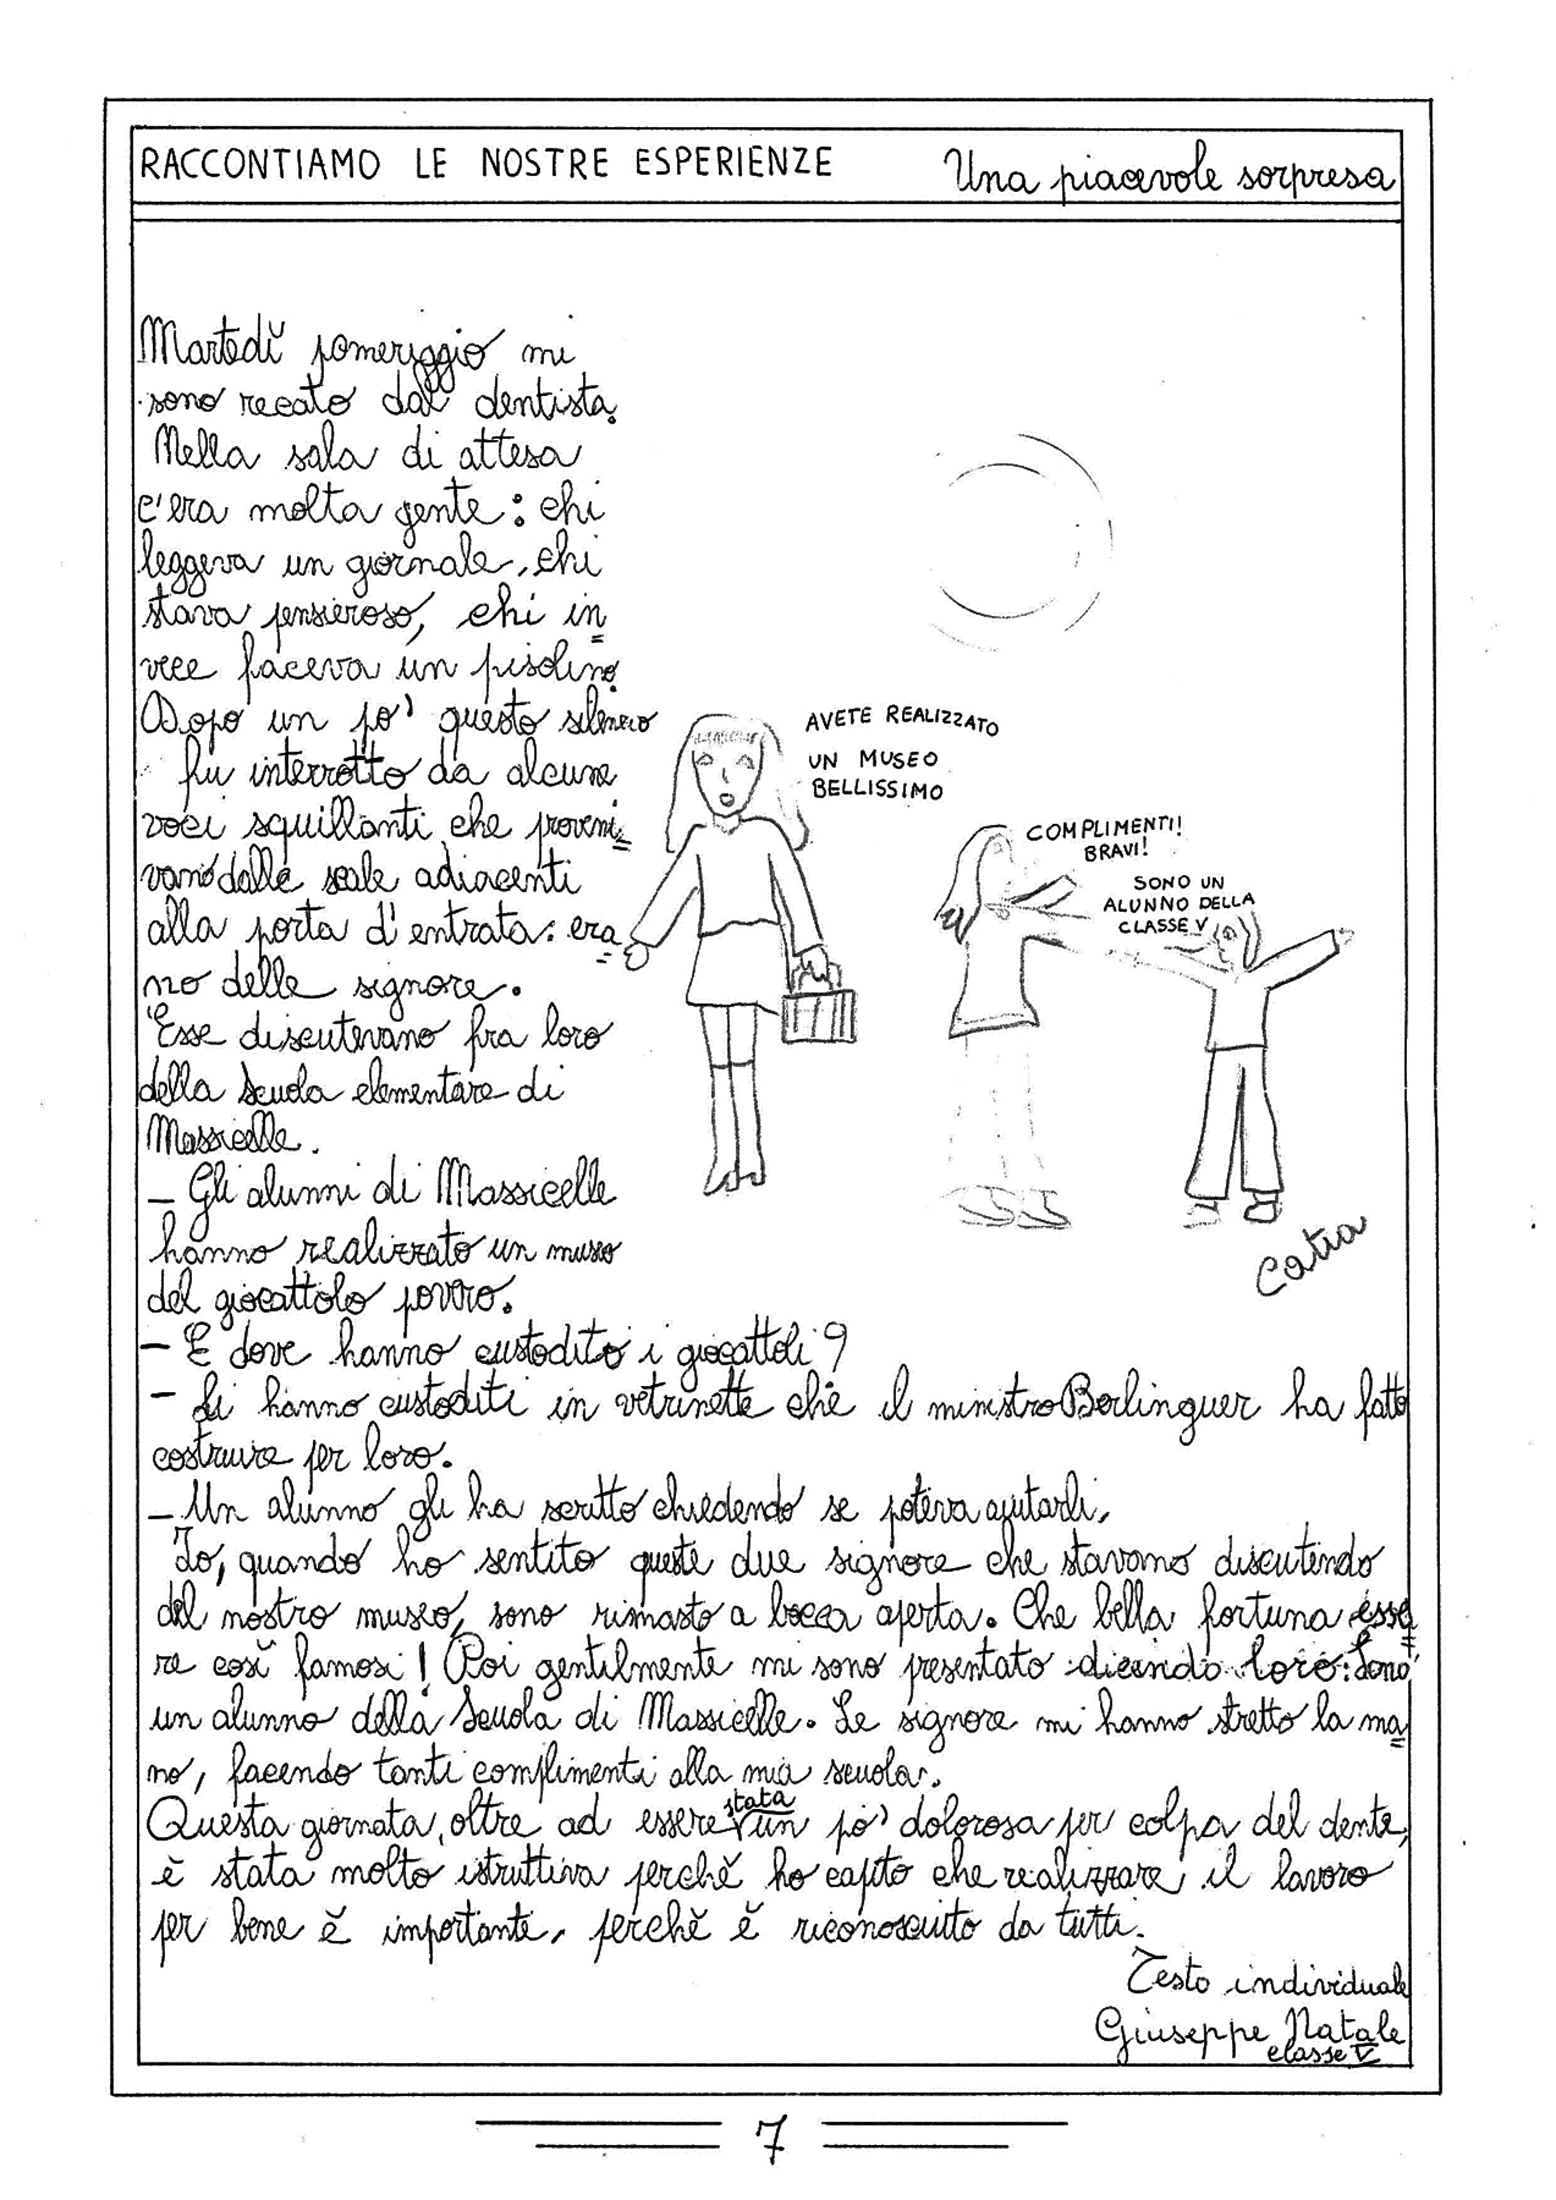 RACCONTIAMO LE NOSTRE ESPERIENZE Una piacevole sorpresa
Martedì pomeriggio mi
sono recato dal dentista.
Nella sala di attesa
c'era molta gente: chi
leggeva un giornale, chi
stava pensieroso, chi in=
vece faceva un pisolino.
Dopo un po' questo silenzio
fu interrotto da alcune
voci squillanti che proveni=
vano dalle scale adiacenti
alla porta d'entrata: era=
no delle signore.
Esse discutevano fra loro
della Scuola elementare di
Massicelle.
- Gli alunni di Massicelle
hanno realizzato un museo
del giocattolo povero.
- E dove hanno custodito i giocattoli?
- Li hanno custoditi in vetrinette che il ministro Berlinguer ha fatto
costruire per loro.
- Un alunno gli ha scritto chiedendo se poteva aiutarli.
Io, quando ho sentito queste due signore che stavano discutendo
del nostro museo, sono rimasto a bocca aperta. Che bella fortuna esse=
re così famosi! Poi gentilmente mi sono presentato dicendo loro: Sono
un alunno della Scuola di Massicelle. Le signore mi hanno stretto la ma=
no, facendo tanti complimenti alla mia scuola.
Questa giornata, oltre ad essere stata un po' dolorosa per colpa del dente,
è stata molto istruttiva perchè ho capito che realizzare il lavoro
per bene è importante, perchè è riconosciuto da tutti.
Testo individuale
Giuseppe Natale
classe V
AVETE REALIZZATO
UN MUSEO
BELLISSIMO
COMPLIMENTI!
BRAVI!
SONO UN
ALUNNO DELLA
CLASSE V
Catia
7